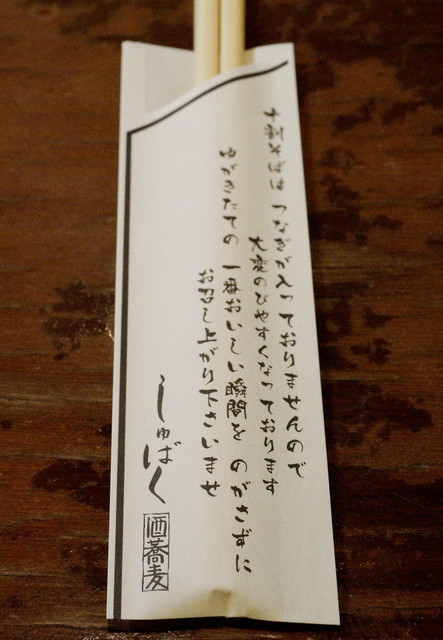 十割そばは つなぎが入っておりませんので
大変のびやすくなっております
ゆがきたての 一番おいしい瞬間を のがさずに
お召し上がり下さいませ
しゅばく
酒蕎麦